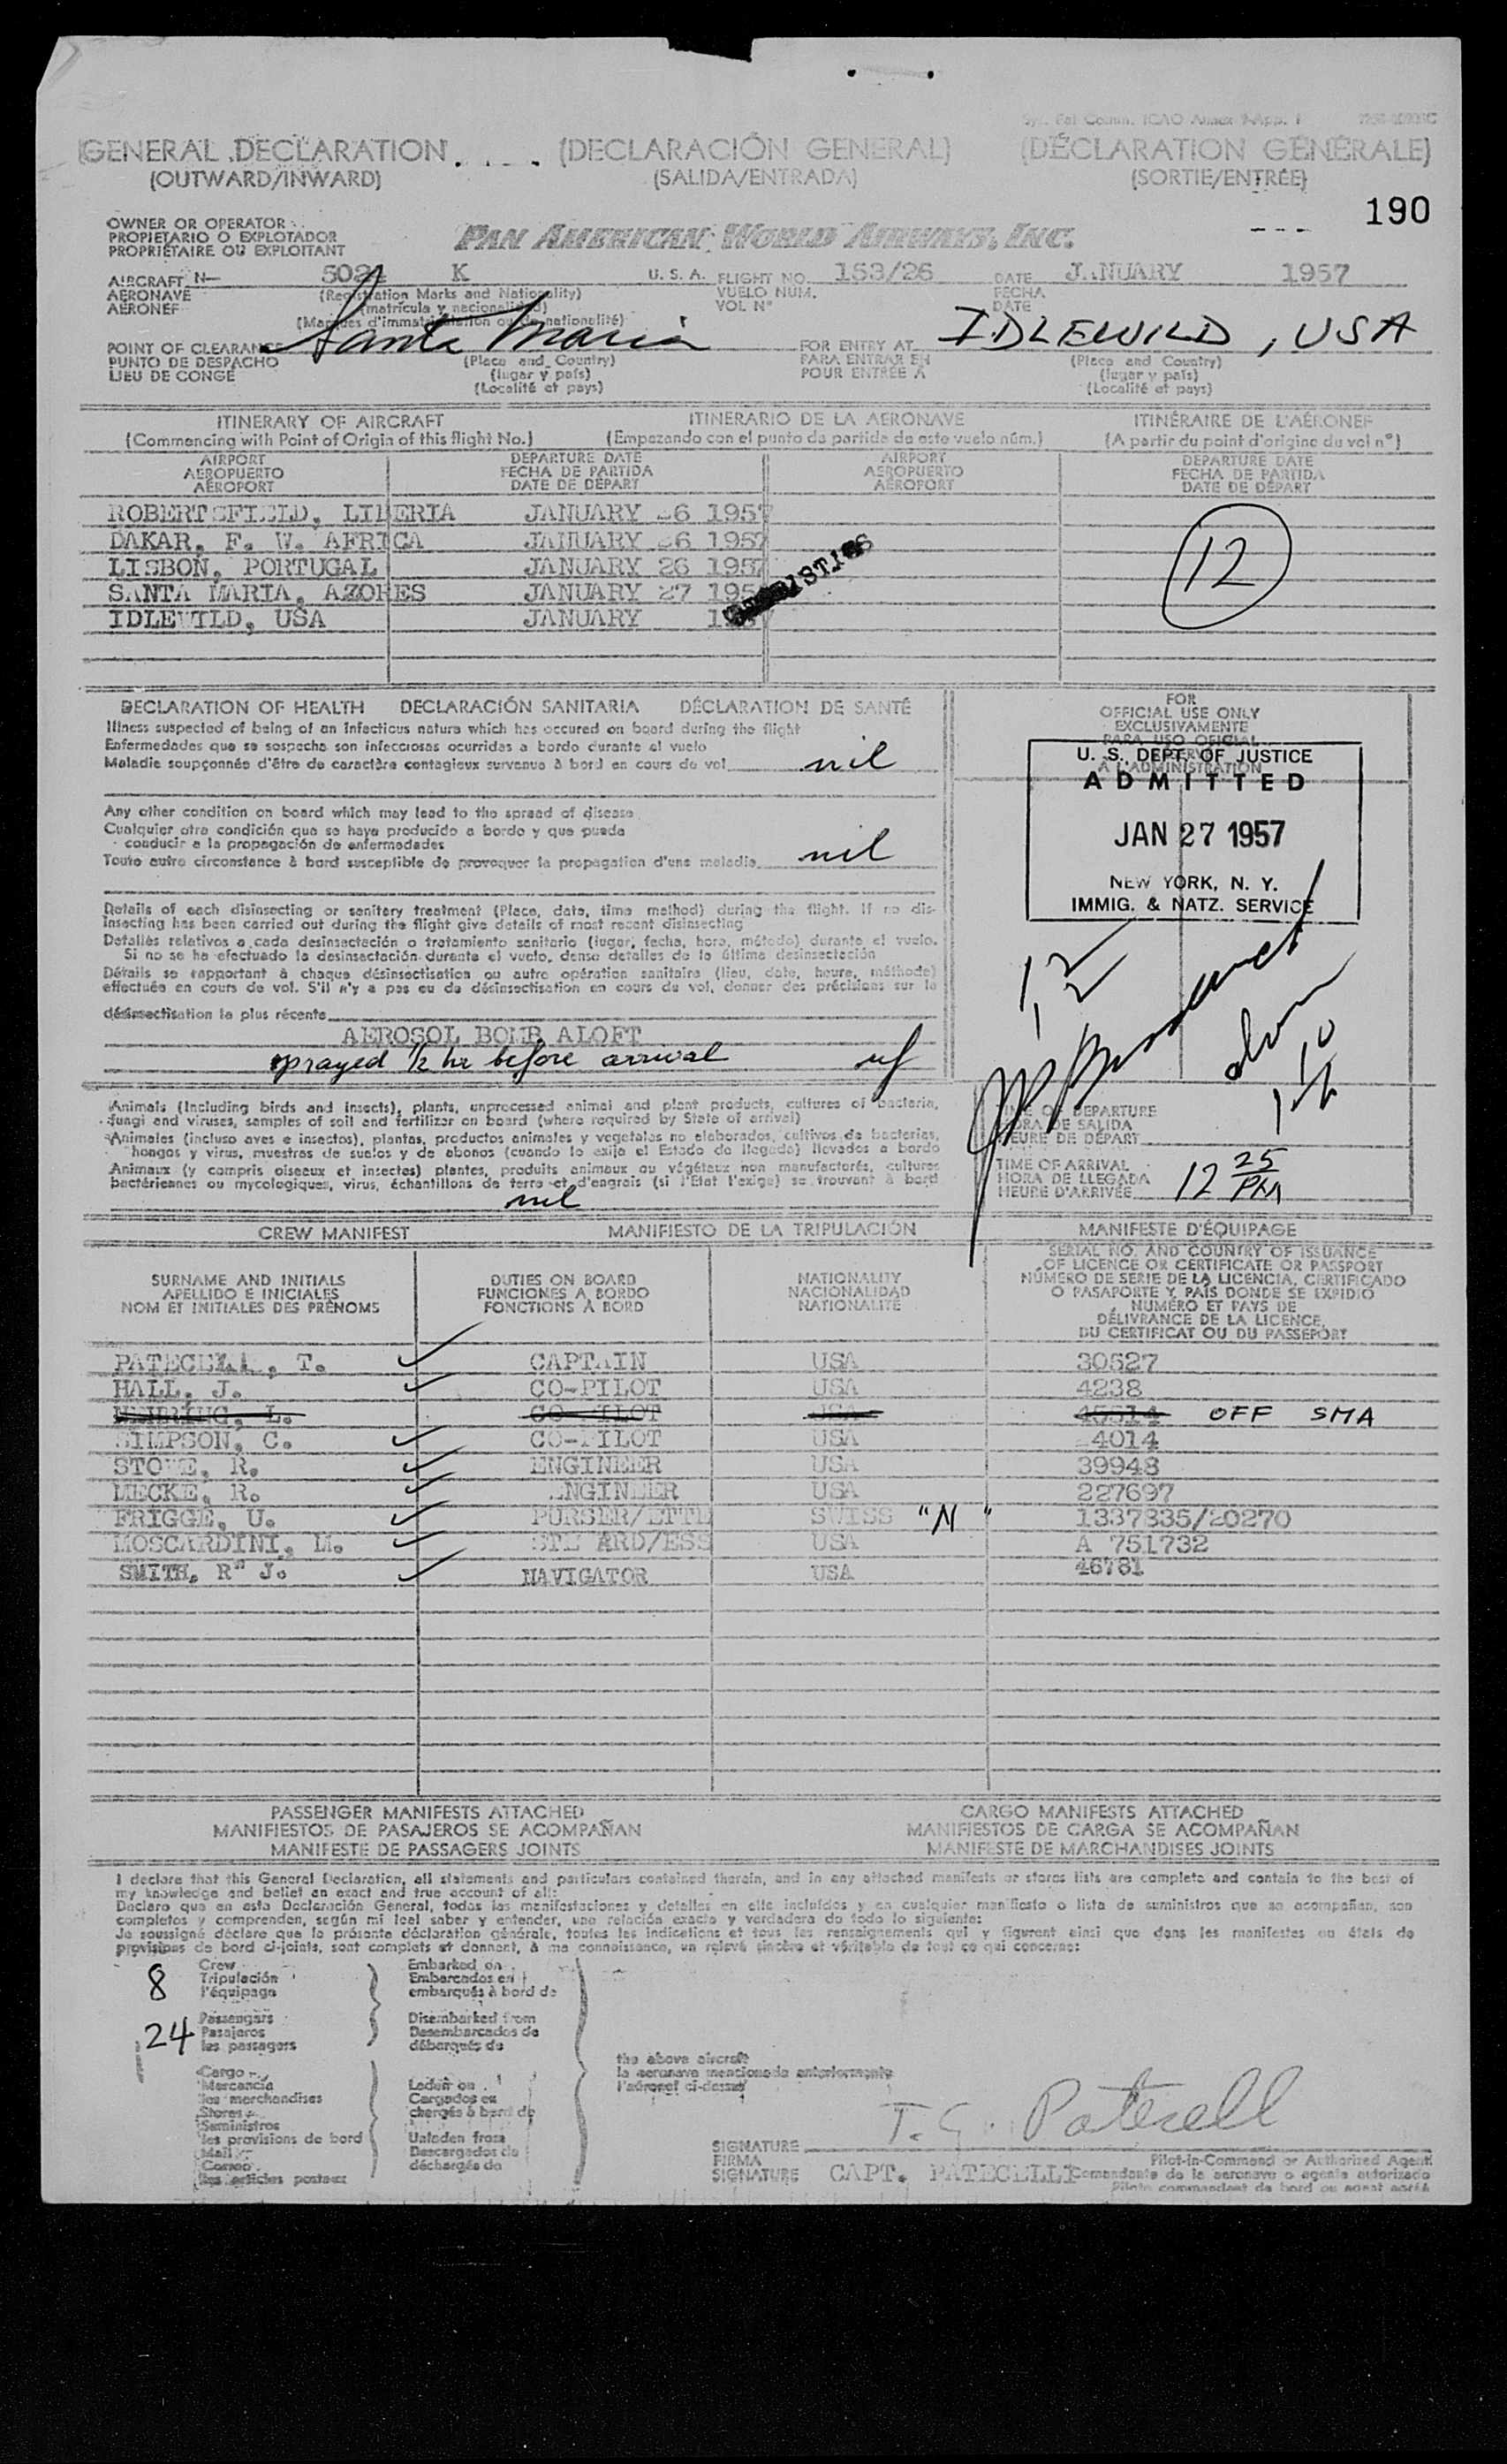 GENERAL DECLARATION (DECLARACIÓN GENERAL) (DÉCLARATION GÉNÉRALE)
(OUTWARD/INWARD) (SALIDA/ENTRADA) (SORTIE/ENTRÉE)
190
OWNER OR OPERATOR
PROPIETARIO O EXPLOTADOR
PROPRIÉTAIRE OU EXPLOITANT
PAN AMERICAN WORLD AIRWAYS, INC.
AIRCRAFT N— K U. S. A. FLIGHT NO. 153/26 DATE JANUARY 1957
AERONAVE (Registration Marks and Nationality) VUELO NUM. FECHA
AÉRONEF (matrícula y nacionalidad) VOL N° DATE
(Marques d'immatriculation ou de nationalité)
POINT OF CLEARANCE Santa Maria FOR ENTRY AT IDLEWILD, USA
PUNTO DE DESPACHO (Place and Country) PARA ENTRAR EN (Place and Country)
LIEU DE CONGÉ (lugar y país) POUR ENTRÉE À (lugar y país)
(Localité et pays) (Localité et pays)
ITINERARY OF AIRCRAFT ITINERARIO DE LA AERONAVE ITINÉRAIRE DE L'AÉRONEF
(Commencing with Point of Origin of this flight No.) (Empezando con el punto de partida de este vuelo núm.) (A partir du point d'origine du vol n°)
AIRPORT DEPARTURE DATE AIRPORT DEPARTURE DATE
AEROPUERTO FECHA DE PARTIDA AEROPUERTO FECHA DE PARTIDA
AÉROPORT DATE DE DÉPART AÉROPORT DATE DE DÉPART
ROBERTSFIELD, LIBERIA JANUARY 26 1957
DAKAR, F. W. AFRICA JANUARY 26 1957
LISBON, PORTUGAL JANUARY 26 1957
SANTA MARIA, AZORES JANUARY 27
IDLEWILD, USA JANUARY
12
DECLARATION OF HEALTH DECLARACIÓN SANITARIA DÉCLARATION DE SANTÉ
Illness suspected of being of an infectious nature which has occured on board during the flight
Enfermedades que se sospecha son infecciosas ocurridas a bordo durante el vuelo
Maladie soupçonnée d'être de caractère contagieux survenue à bord en cours de vol nil
Any other condition on board which may lead to the spread of disease
Cualquier otra condición que se haya producido a bordo y que pueda
conducir a la propagación de enfermedades
Toute autre circonstance à bord susceptible de provoquer la propagation d'une maladie nil
Details of each disinsecting or sanitary treatment (Place, date, time method) during the flight. If no dis-
insecting has been carried out during the flight give details of most recent disinsecting
Detalles relativos a cada desinsectación o tratamiento sanitario (lugar, fecha, hora, método) durante el vuelo.
Si no se ha efectuado la desinsectación durante el vuelo, dense detalles de la última desinsectación
Détails se rapportant à chaque désinsectisation ou autre opération sanitaire (lieu, date, heure, méthode)
effectuée en cours de vol. S'il n'y a pas eu de désinsectisation en cours du vol, donner des précisions sur la
désinsectisation la plus récente
AEROSOL BOMB ALOFT
sprayed 1/2 hr before arrival
Animals (Including birds and insects), plants, unprocessed animal and plant products, cultures of bacteria,
fungi and viruses, samples of soil and fertilizer on board (where required by State of arrival)
Animales (incluso aves e insectos), plantas, productos animales y vegetales no elaborados, cultivos de bacterias,
hongos y virus, muestras de suelos y de abonos (cuando lo exija el Estado de llegada) llevados a bordo
Animaux (y compris oiseaux et insectes) plantes, produits animaux ou végétaux non manufacturés, cultures
bactériennes ou mycologiques, virus, échantillons de terre et d'engrais (si l'Etat l'exige) se trouvant à bord
nil
FOR
OFFICIAL USE ONLY
EXCLUSIVAMENTE
PARA USO OFICIAL
A L'ADMINISTRATION
U. S. DEPT. OF JUSTICE
ADMITTED
JAN 27 1957
NEW YORK, N. Y.
IMMIG. & NATZ. SERVICE
TIME OF DEPARTURE
HORA DE SALIDA
HEURE DE DÉPART
TIME OF ARRIVAL
HORA DE LLEGADA
HEURE D'ARRIVÉE 12 25 PM
CREW MANIFEST MANIFIESTO DE LA TRIPULACIÓN MANIFESTE D'ÉQUIPAGE
SURNAME AND INITIALS DUTIES ON BOARD NATIONALITY SERIAL NO. AND COUNTRY OF ISSUANCE
APELLIDO E INICIALES FUNCIONES A BORDO NACIONALIDAD OF LICENCE OR CERTIFICATE OR PASSPORT
NOM ET INITIALES DES PRÉNOMS FONCTIONS À BORD NATIONALITÉ NÚMERO DE SERIE DE LA LICENCIA, CERTIFICADO
O PASAPORTE Y PAÍS DONDE SE EXPIDIÓ
NUMÉRO ET PAYS DE
DÉLIVRANCE DE LA LICENCE,
DU CERTIFICAT OU DU PASSEPORT
PATECELL, T. CAPTAIN USA 30527
HALL, J. CO-PILOT USA 4238
L. CO-PILOT USA 45514 OFF SMA
SIMPSON, C. CO-PILOT USA 4014
R. ENGINEER USA 39948
MECKE, R. ENGINEER USA 227697
FRIGGE, U. PURSER/ETTE SWISS "N" 1337835/20270
MOSCARDINI, M. STEWARD/ESS USA A 751732
SMITH, R" J. NAVIGATOR USA 46781
PASSENGER MANIFESTS ATTACHED CARGO MANIFESTS ATTACHED
MANIFIESTOS DE PASAJEROS SE ACOMPAÑAN MANIFIESTOS DE CARGA SE ACOMPAÑAN
MANIFESTE DE PASSAGERS JOINTS MANIFESTE DE MARCHANDISES JOINTS
I declare that this General Declaration, all statements and particulars contained therein, and in any attached manifests or stores lists are complete and contain to the best of
my knowledge and belief an exact and true account of all:
Declaro que en esta Declaración General, todas las manifestaciones y detalles en ella incluídos y en cualquier manifiesto o lista de suministros que se acompañan, son
completos y comprenden, según mi leal saber y entender, una relación exacta y verdadera de todo lo siguiente:
Je soussigné déclare que la présente déclaration générale, toutes les indications et tous les renseignements qui y figurent ainsi que dans les manifestes ou états de
provisions de bord ci-joints, sont complets et donnent, à ma connaissance, un relevé sincère et véritable de tout ce qui concerne:
8 Crew Embarked on
Tripulación Embarcados en
l'équipage embarqués à bord de
24 Passengers Disembarked from
Pasajeros Desembarcados de
les passagers débarqués de
Cargo
Mercancía Laden on
les marchandises Cargados en
Stores chargés à bord de
Suministros
les provisions de bord Unladen from
Mail Descargados de
Correo déchargés de
les articles postaux
the above aircraft
la aeronave mencionada anteriormente
l'aéronef ci-dessus
T. G. Patecell
SIGNATURE
FIRMA Pilot-in-Command or Authorized Agent
SIGNATURE CAPT. PATECELL Comandante de la aeronave o agente autorizado
Pilote commandant de bord ou agent agréé